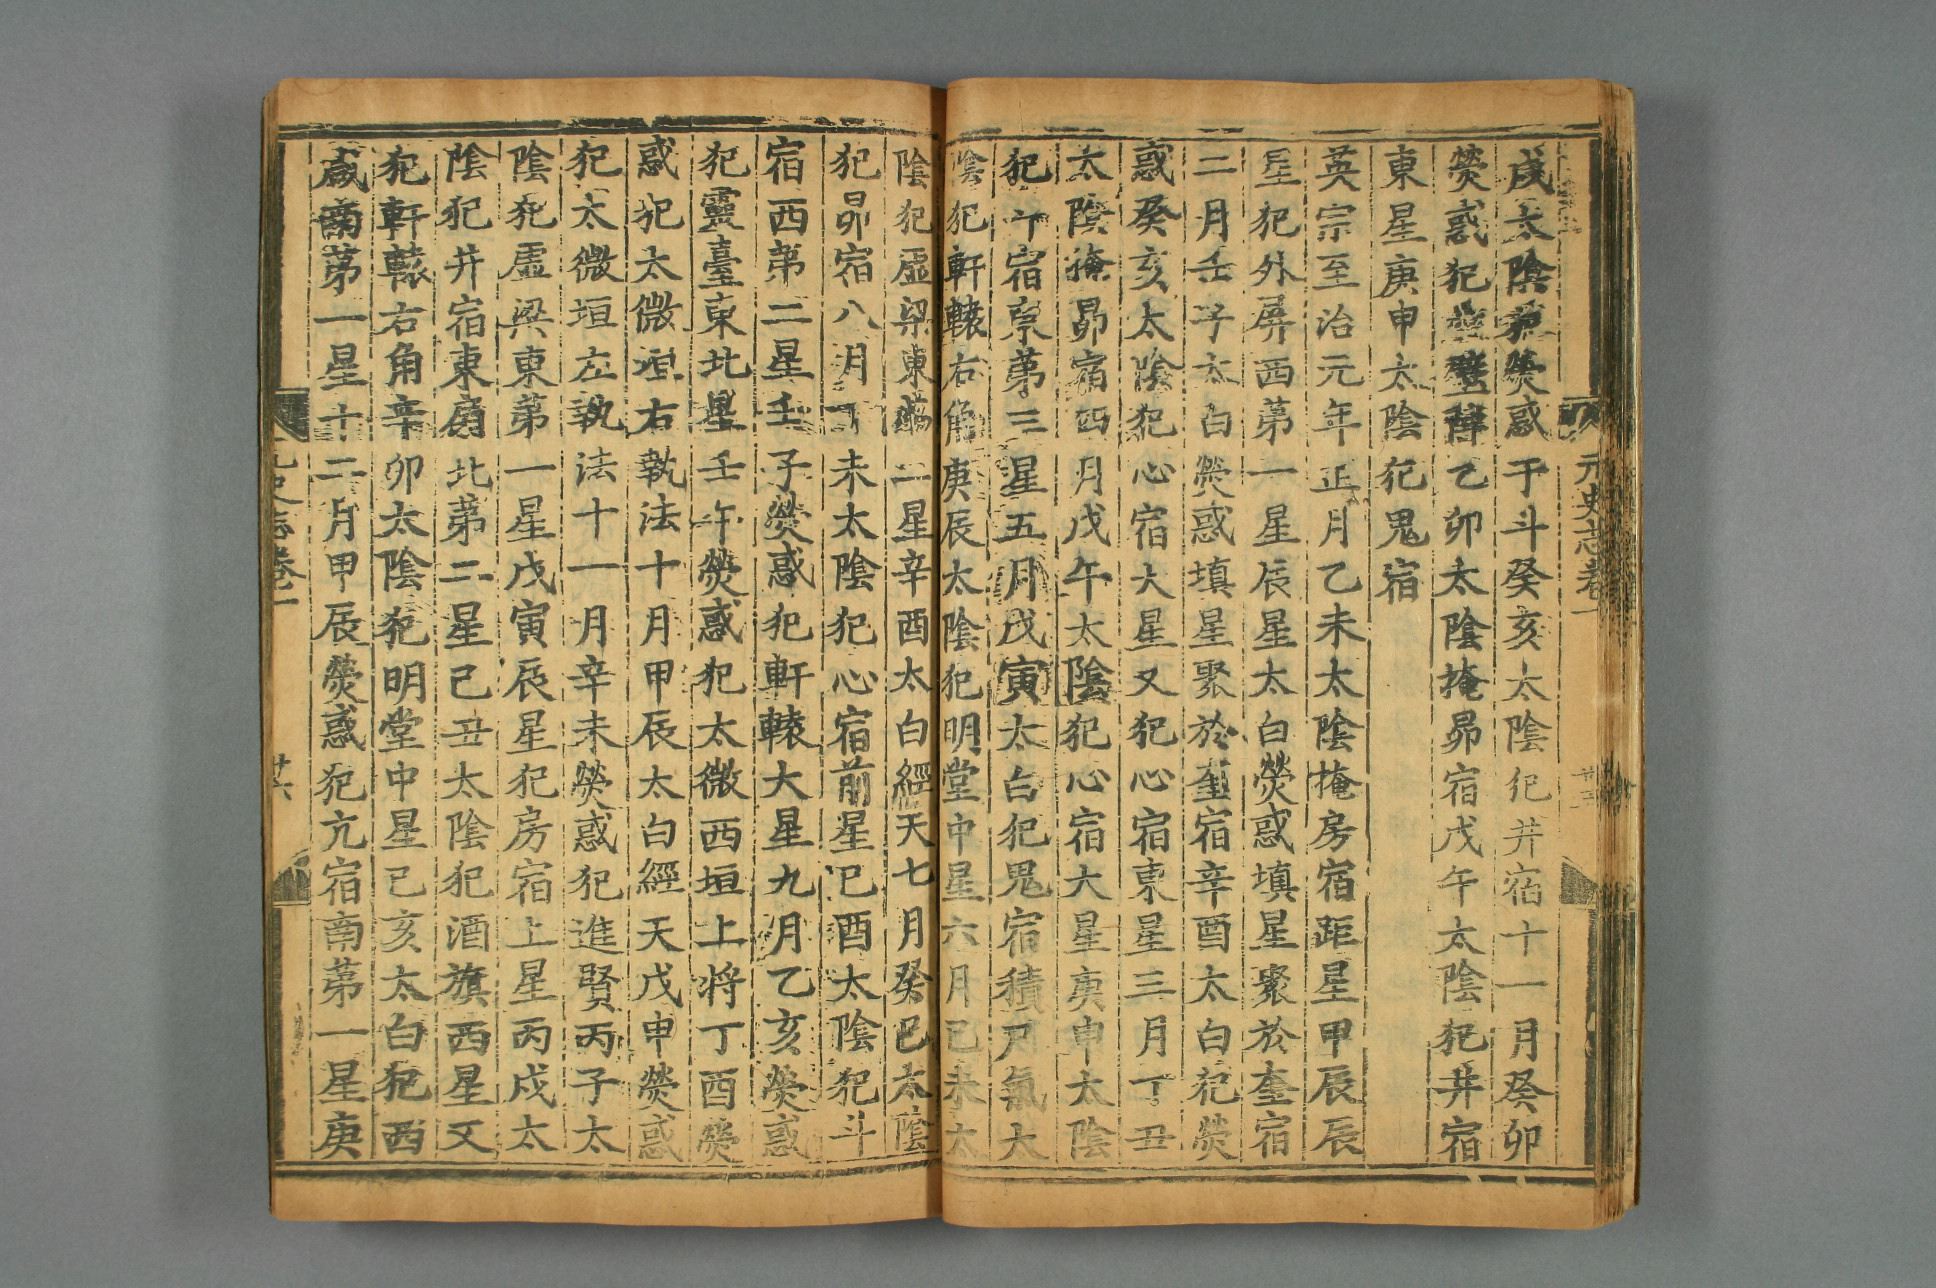 元史志卷一
戌太陰犯熒惑于斗癸亥太陰犯井宿十一月癸卯
熒惑犯壘壁陣乙卯太陰掩昴宿戊午太陰犯井宿
東星庚申太陰犯鬼宿
英宗至治元年正月乙未太陰掩房宿距星甲辰辰
星犯外屏西第一星辰星太白熒惑填星聚於奎宿
二月壬子太白熒惑填星聚於奎宿辛酉太白犯熒
惑癸亥太陰犯心宿大星又犯心宿東星三月丁丑
太陰掩昴宿四月戊午太陰犯心宿大星庚申太陰
犯斗宿東第三星五月戊寅太白犯鬼宿積尸氣太
陰犯軒轅右角庚辰太陰犯明堂中星六月己未太
陰犯虛梁東第二星辛酉太白經天七月癸巳太陰
犯昴宿八月丁未太陰犯心宿前星己酉太陰犯斗
宿西第二星壬子熒惑犯軒轅大星九月乙亥熒惑
犯靈臺東北星壬午熒惑犯太微西垣上將丁酉熒
惑犯太微垣右執法十月甲辰太白經天戊申熒惑
犯太微垣左執法十一月辛未熒惑犯進賢丙子太
陰犯虛梁東第一星戊寅辰星犯房宿上星丙戌太
陰犯井宿東扇北第二星己丑太陰犯酒旗西星又
犯軒轅右角辛卯太陰犯明堂中星己亥太白犯西
咸南第一星十二月甲辰熒惑犯亢宿南第一星庚
元史志卷一
廿六